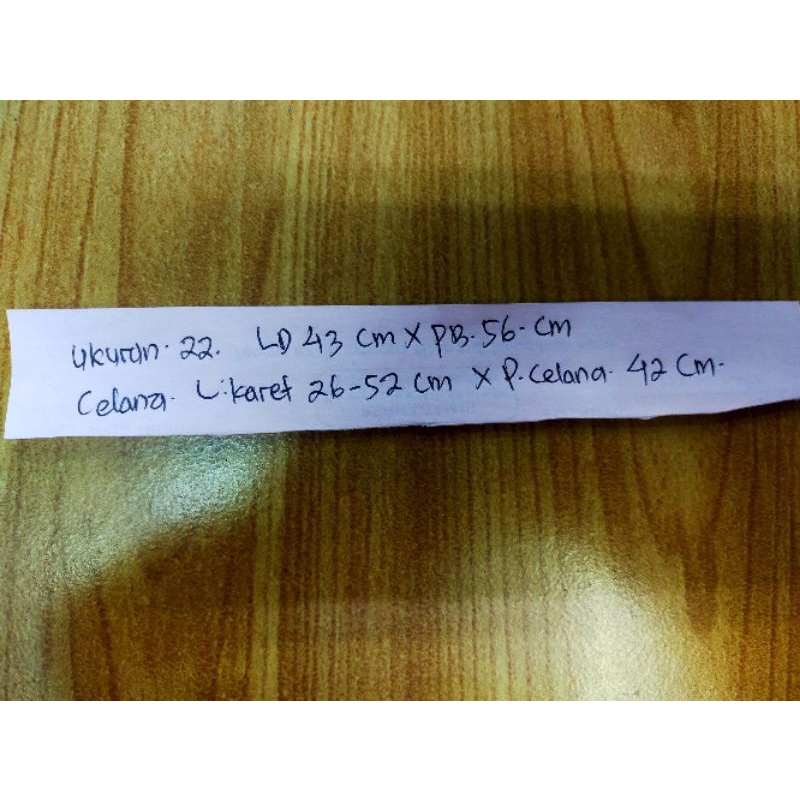 Ukuran. 22. LD 43 cm X PB. 56. cm
Celana. L. karet 26-52 cm X P. celana. 42 cm.